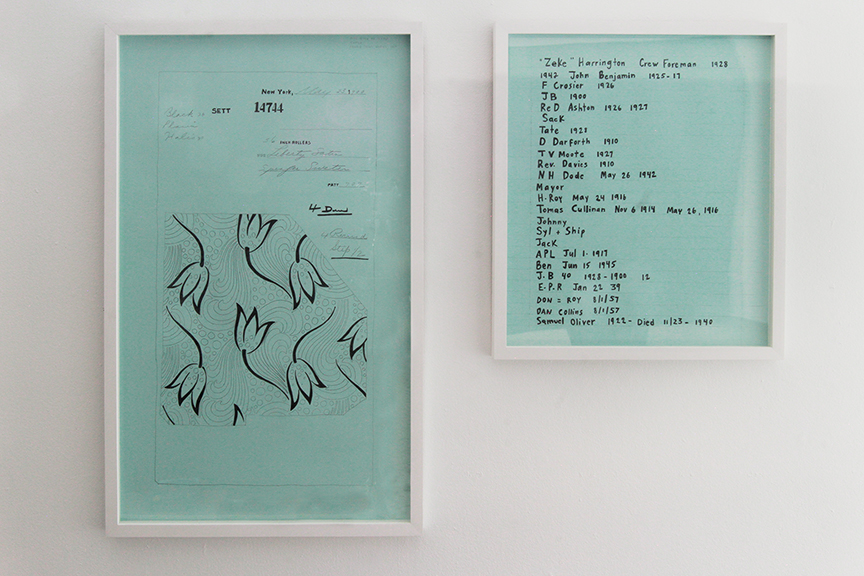 New York,
SETT 14744
Black
26 ONLY ROLLERS
on Liberty
4 Dun
"Zeke" Harrington Crew Foreman 1928
1942 John Benjamin 1925-17
F Crosier 1926
JB 1900
Re D Ashton 1926 1927
Sack
Tate 1928
D Darforth 1910
TV Moote 1927
Rev. Davies 1910
NH Dode May 26 1942
Mayor
H. Roy May 24 1916
Tomas Cullinan Nov 6 1914 May 26, 1916
Johnny
Syl + Ship
Jack
APL Jul 1. 1917
Ben Jun 15 1945
J.B 40 1928-1900 12
E.P.R Jan 22 39
DON = ROY 8/1/57
DAN Collins 8/1/57
Samuel Oliver 1922- Died 11/23 - 1940